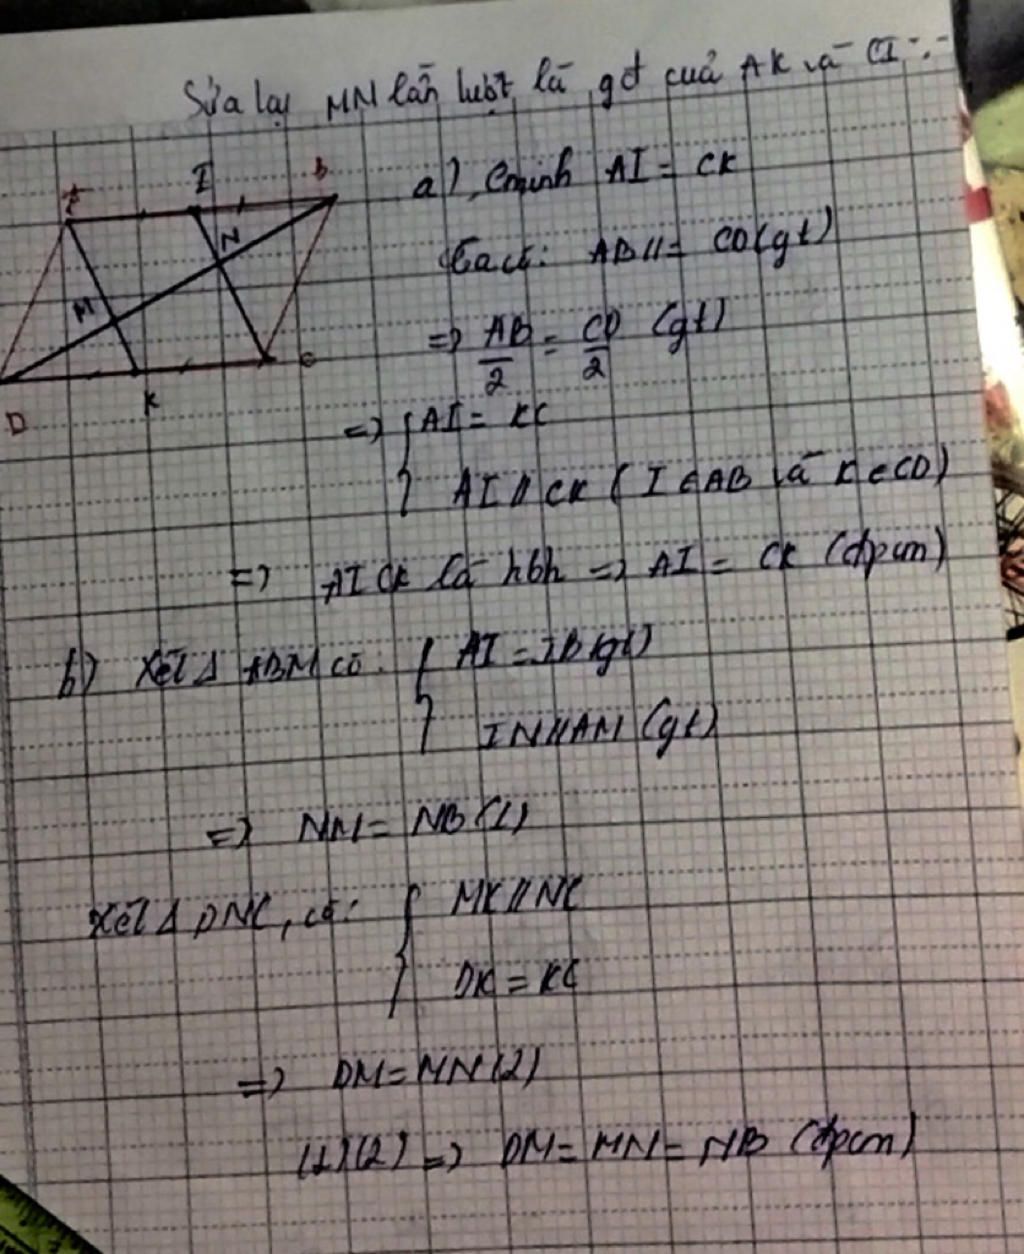 Sửa lại MN lần lượt là gđ của AK và CI
A I B
N
M
D K C
a) Cminh AI = CK
Ta có: AB // = CD (gt)
=> AB/2 = CD/2 (gt)
=> { AI = KC
AI // CK ( I ∈ AB và K ∈ CD)
=> AICK là hbh => AI = CK (đpcm)
b) Xét Δ ABM có: { AI = IB (gt)
IN // AM (gt)
=> NM = NB (1)
Xét Δ DNC, có: { MK // NC
DK = KC
=> DM = MN (2)
(1)(2) => DM = MN = NB (đpcm)